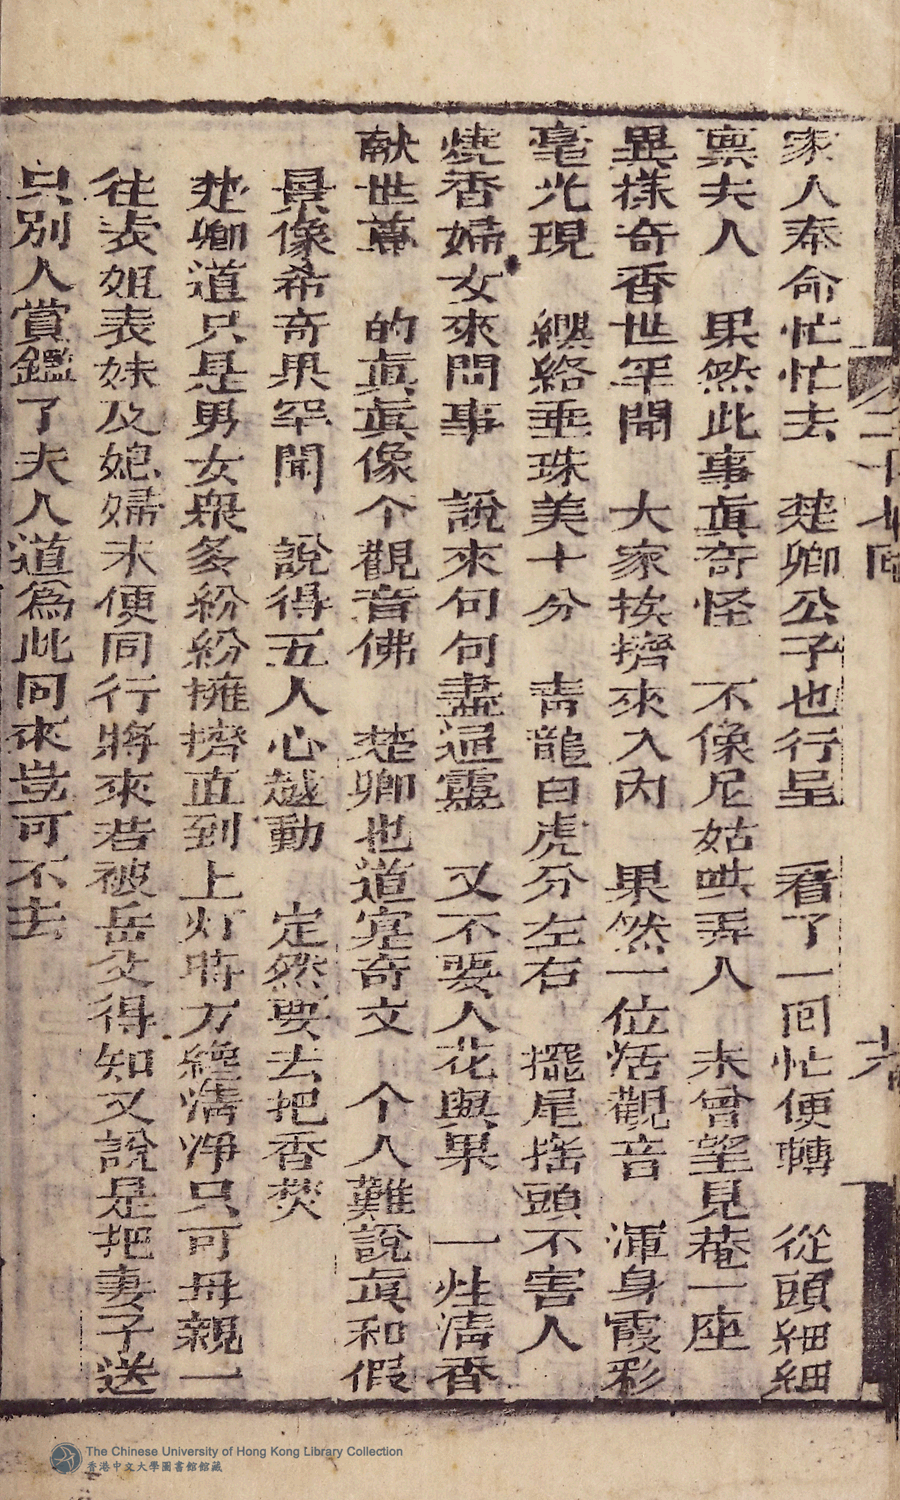 家人奉命忙忙去　楚卿公子也行呈　看了一回忙便轉　從頭細細
禀夫人　果然此事眞奇怪　不像尼姑哄弄人　未曾望見菴一座
異樣奇香世罕聞　大家挨擠來入內　果然一位活觀音　渾身霞彩
毫光現　纓絡垂珠美十分　青龍白虎分左右　擺尾搖頭不害人
燒香婦女來問事　說來句句盡通靈　又不要人花與果　一炷清香
献世尊　的眞眞像个觀音佛　楚卿也道寔奇文　个人難說眞和假
景像希奇果罕聞　說得五人心越動　定然要去把香焚
楚卿道只是男女衆多紛紛擁擠直到上灯時方絶清凈只可母親一
往表姐表妹及媳婦未便同行將來若被岳父得知又說是把妻子送
只別人賞鑑了夫人道爲此同來豈可不去
二十七回
The Chinese University of Hong Kong Library Collection
香港中文大學圖書館館藏